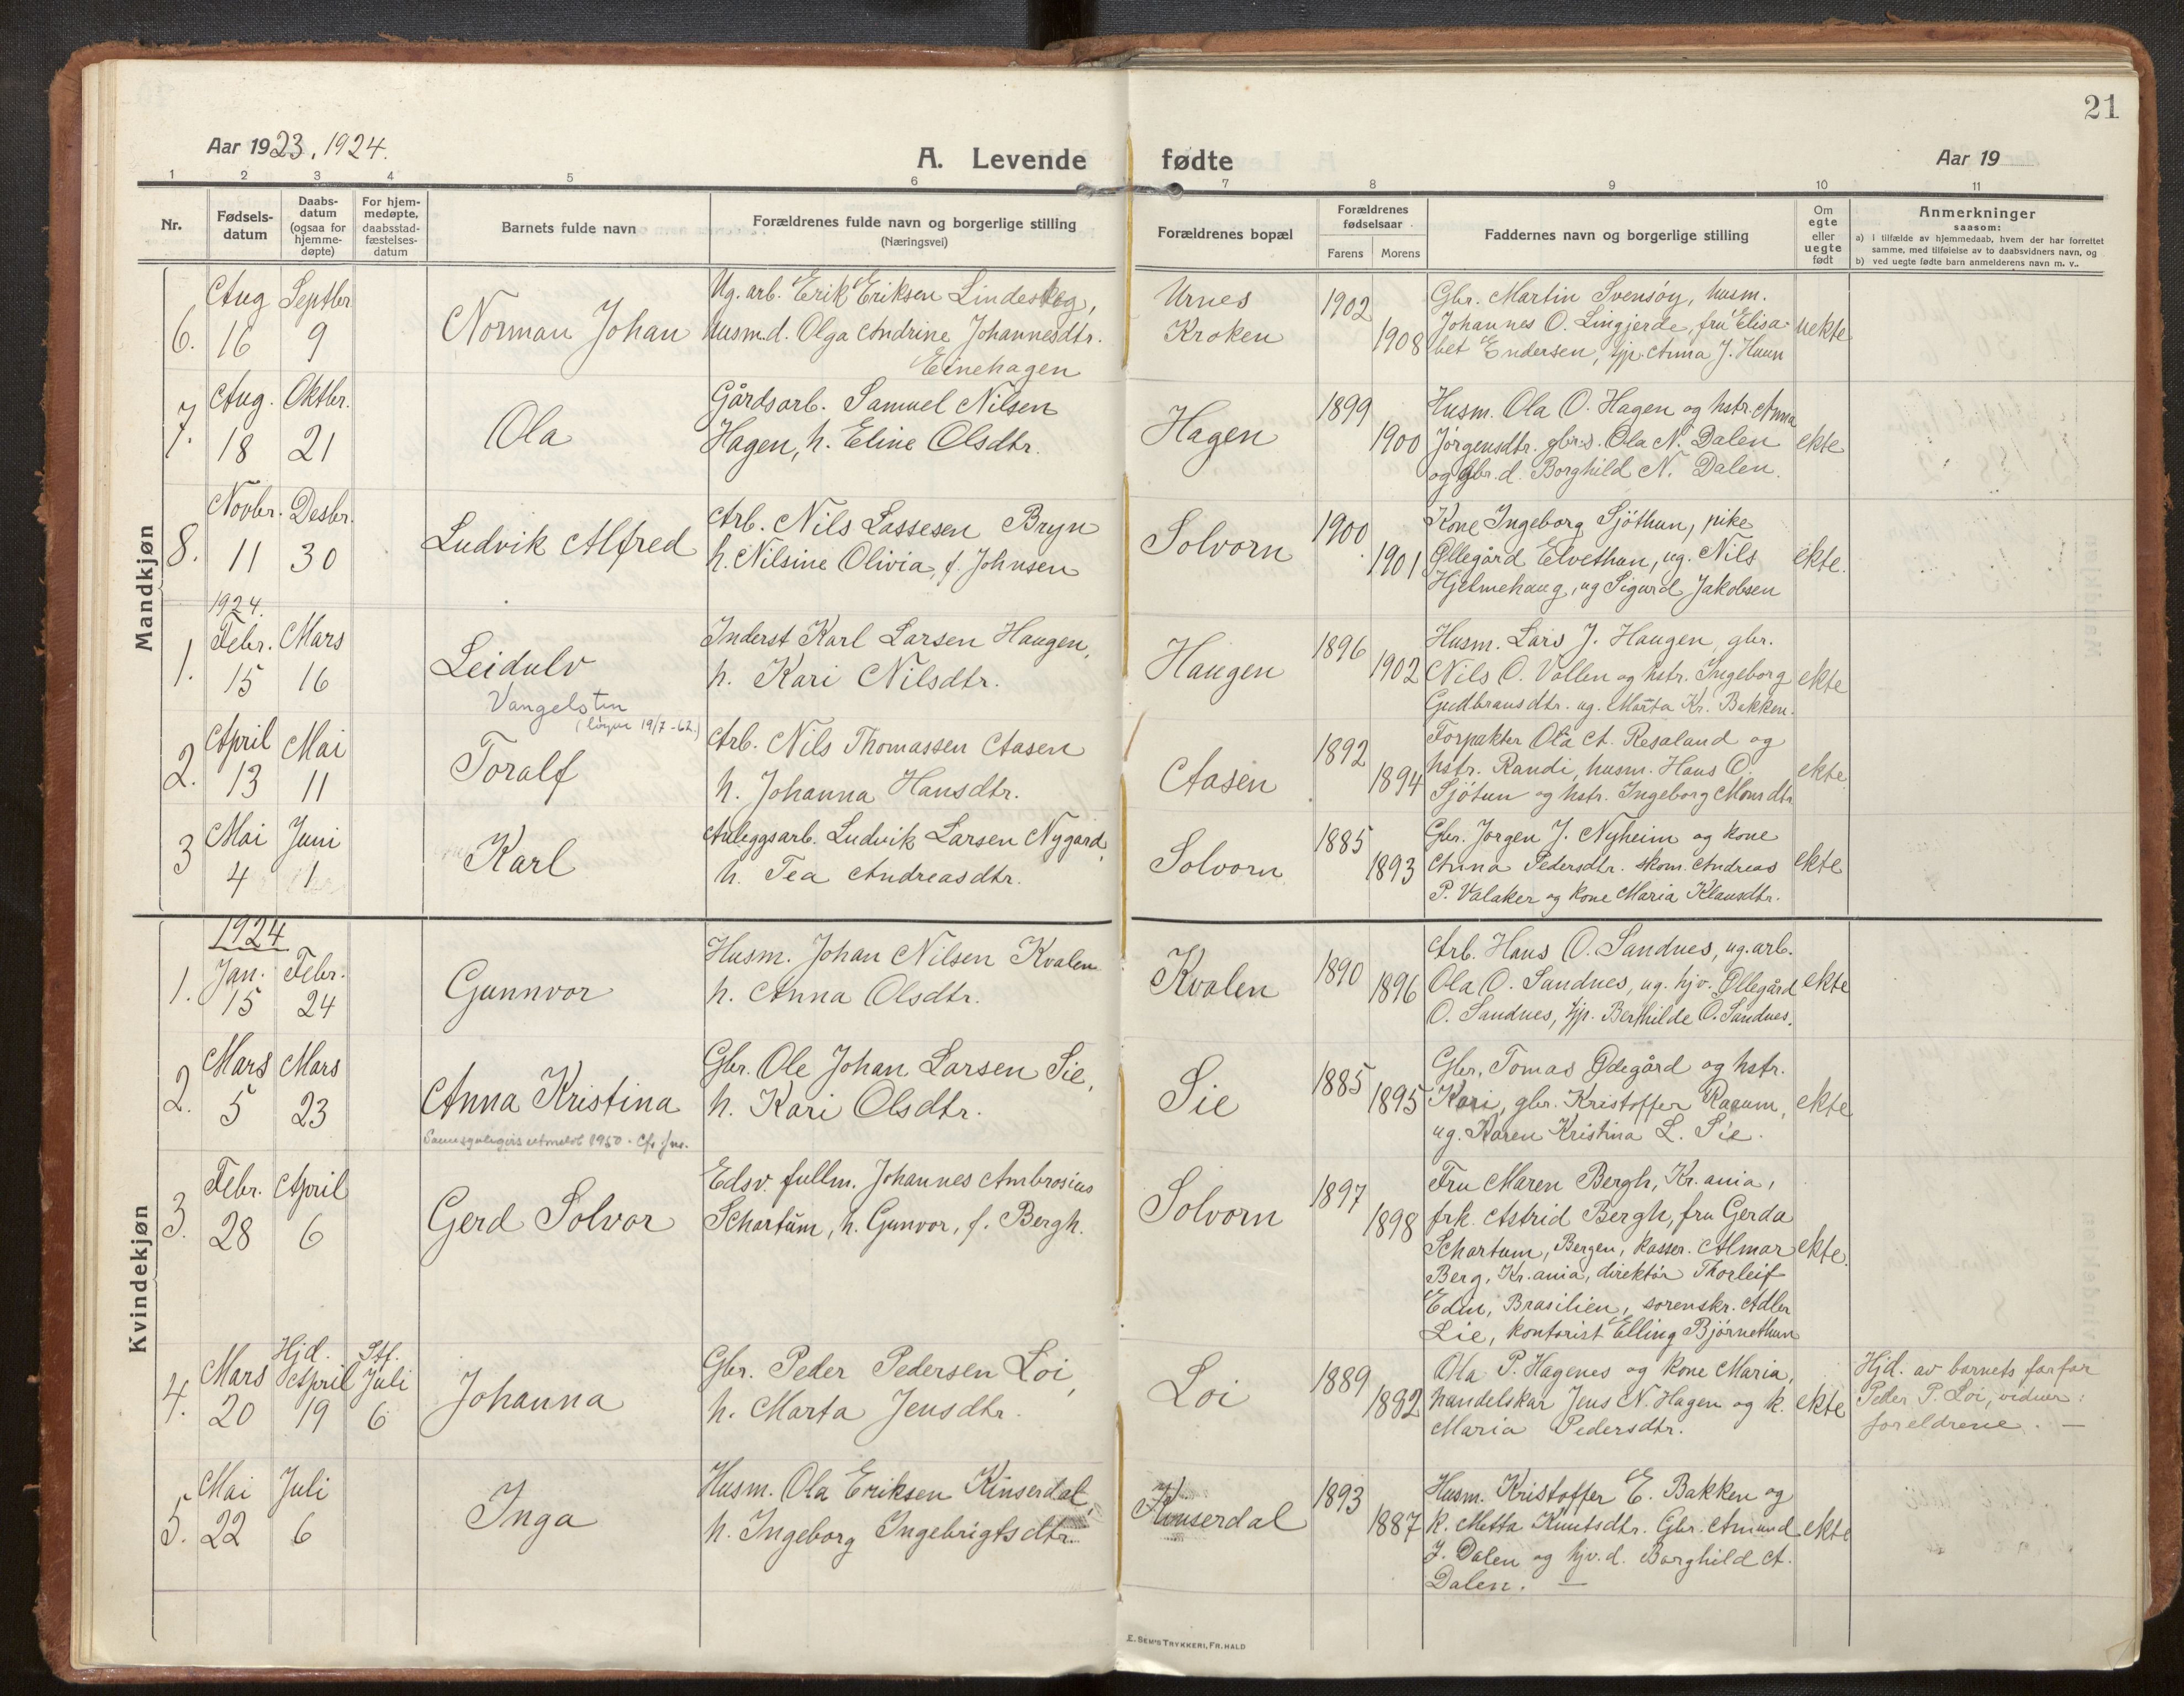 21
Aar 1923, 1924.
A. Levende fødte
Aar 19
1 2 3 4 5 6 7 8 9 10 11
Nr.
Fødsels-
datum
Daabs-
datum
(ogsaa for
hjemme-
døpte)
For hjem-
medøpte,
daabsstad-
fæstelses-
datum
Barnets fulde navn
Forældrenes fulde navn og borgerlige stilling
(Næringsvei)
Forældrenes bopæl
Forældrenes
fødselsaar
Farens Morens
Faddernes navn og borgerlige stilling
Om
egte
eller
uegte
født
Anmerkninger
saasom:
a) i tilfælde av hjemmedaab, hvem der har forrettet
samme, med tilføielse av to daabsvidners navn, og
b) ved uegte fødte barn anmelderens navn m. v..
Mandkjøn
6.
Aug
16
Septbr
9
Norman Johan
Ug. arb. Erik Eriksen Lindesteg,
husm.d. Olga Andrine Johannesdtr.
Einehagen
Urnes
Kroken
1902
1908
Gbr. Martin Svensøy, husm.
Johannes O. Lingjerde, fru Elisa-
bet Endersen, tjp. Anna J. Haun
uekte
7.
Aug.
18
Oktbr.
21
Ola
Gårdsarb. Samuel Nilsen
Hagen, h. Eline Olsdtr.
Hagen
1899
1900
Husm. Ola O. Hagen og hstr. Anna
Jørgensdtr. gbr.s. Ola N. Dalen
og gbr. d. Borghild N. Dalen.
ekte
8.
Novbr.
11
Desbr.
30
Ludvik Alfred
Arb. Nils Lassesen Bryn
h. Nilsine Olivia, f. Johnsen
Solvorn
1900
1901
Kone Ingeborg Sjøthun, pike
Øllegård Elvethun, ug. Nils
Hjelmehaug, ug Sigurd Jakobsen
ekte.
1924.
1.
Febr.
15
Mars
16
Leidulv
Vangelsten
(løyve 19/7-62.)
Inderst Karl Larsen Haugen,
h. Kari Nilsdtr.
Haugen
1896
1902
Husm. Lars J. Haugen, gbr.
Nils O. Vollen og hstr. Ingeborg
Gudbransdtr. ug. Marta Kr. Bakken.
ekte
2.
April
13
Mai
11
Toralf
Arb. Nils Thomassen Aasen
h. Johanna Hansdtr.
Aasen
1892
1894
Forpakter Ola A. Resaland og
hstr. Randi, husm. Hans O.
Sjøtun og hstr. Ingeborg Monsdtr
ekte
3
Mai
4
Juni
1
Karl
Anleggsarb. Ludvik Larsen Nygard,
h. Tea Andreasdtr.
Solvorn
1885
1893
Gbr. Jørgen J. Nyheim og kone
Anna Pedersdtr. skom. Andreas
P. Valaker og kone Maria Klausdtr.
ekte
Kvindekjøn
1924
1.
Jan.
15
Febr.
24
Gunnvor
Husm. Johan Nilsen Kvalen
h. Anna Olsdtr.
Kvalen
1890
1896
Arb. Hans O. Sandnes, ug. arb.
Ola O. Sandnes, ug. hjv. Øllegård
O. Sandnes, tjp. Berthilde O. Sandnes.
ekte
2.
Mars
5
Mars
23
Anna Kristina
utmeldt 1950.
Gbr. Ole Johan Larsen Sie,
h. Kari Olsdtr.
Sie
1885
1895
Gbr. Tomas Ødegård og hstr.
Kari, gbr. Kristoffer Raaum,
ug. Karen Kristina L. Sie.
ekte
3.
Febr.
28
April
6
Gerd Solvor
Edsv. fullm. Johannes Ambrosius
Schartum, h. Gunvor, f. Bergh.
Solvorn
1897
1898
Fru Maren Bergh, Kr.ania,
frk. Astrid Bergh, fru Gerda
Schartum, Bergen, kasser. Almar
Berg, Kr.ania, direktør Thorleif
Edin, Brasilien, sorenskr. Adler
Lie, kontorist Elling Bjørnethun
ekte.
4.
Mars
20
Hjd.
April
19
Stf.
Juli
6
Johanna
Gbr. Peder Pedersen Loi,
h. Marta Jensdtr.
Loi
1889
1892
Ola P. Hagenes og kone Maria,
handelskar Jens N. Hagen og k.
Maria Pedersdtr.
ekte
Hjd. av barnets farfar
Peder P. Loi, vidner:
foreldrene. —
5.
Mai
22
Juli
6
Inga
Husm. Ola Eriksen Kinserdal,
h. Ingeborg Ingebrigtsdtr.
Kinserdal
1893
1887
Husm. Kristoffer E. Bakken og
k. Metta Knutsdtr. Gbr. Amund
J. Dalen og hjv.d. Borghild A.
Dalen. —
ekte
E. SEM'S TRYKKERI, FR. HALD